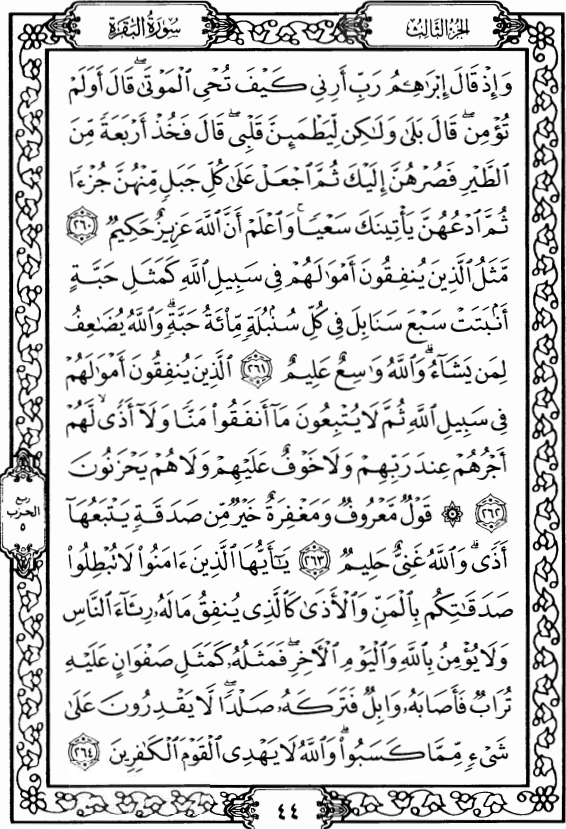 سُورَةُ البَقَرَة
الجُزءُ الثَّالِث
وَإِذْ قَالَ إِبْرَٰهِـۧمُ رَبِّ أَرِنِى كَيْفَ تُحْىِ ٱلْمَوْتَىٰ ۖ قَالَ أَوَلَمْ
تُؤْمِن ۖ قَالَ بَلَىٰ وَلَـٰكِن لِّيَطْمَئِنَّ قَلْبِى ۖ قَالَ فَخُذْ أَرْبَعَةً مِّنَ
ٱلطَّيْرِ فَصُرْهُنَّ إِلَيْكَ ثُمَّ ٱجْعَلْ عَلَىٰ كُلِّ جَبَلٍ مِّنْهُنَّ جُزْءًا
ثُمَّ ٱدْعُهُنَّ يَأْتِينَكَ سَعْيًا ۚ وَٱعْلَمْ أَنَّ ٱللَّهَ عَزِيزٌ حَكِيمٌ ٢٦٠
مَّثَلُ ٱلَّذِينَ يُنفِقُونَ أَمْوَٰلَهُمْ فِى سَبِيلِ ٱللَّهِ كَمَثَلِ حَبَّةٍ
أَنۢبَتَتْ سَبْعَ سَنَابِلَ فِى كُلِّ سُنۢبُلَةٍ مِّا۟ئَةُ حَبَّةٍ ۗ وَٱللَّهُ يُضَـٰعِفُ
لِمَن يَشَآءُ ۗ وَٱللَّهُ وَٰسِعٌ عَلِيمٌ ٢٦١ ٱلَّذِينَ يُنفِقُونَ أَمْوَٰلَهُمْ
فِى سَبِيلِ ٱللَّهِ ثُمَّ لَا يُتْبِعُونَ مَآ أَنفَقُوا۟ مَنًّا وَلَآ أَذًى ۙ لَّهُمْ
أَجْرُهُمْ عِندَ رَبِّهِمْ وَلَا خَوْفٌ عَلَيْهِمْ وَلَا هُمْ يَحْزَنُونَ
٢٦٢ ۞ قَوْلٌ مَّعْرُوفٌ وَمَغْفِرَةٌ خَيْرٌ مِّن صَدَقَةٍ يَتْبَعُهَآ
أَذًى ۗ وَٱللَّهُ غَنِىٌّ حَلِيمٌ ٢٦٣ يَـٰٓأَيُّهَا ٱلَّذِينَ ءَامَنُوا۟ لَا تُبْطِلُوا۟
صَدَقَـٰتِكُم بِٱلْمَنِّ وَٱلْأَذَىٰ كَٱلَّذِى يُنفِقُ مَالَهُۥ رِئَآءَ ٱلنَّاسِ
وَلَا يُؤْمِنُ بِٱللَّهِ وَٱلْيَوْمِ ٱلْـَٔاخِرِ ۖ فَمَثَلُهُۥ كَمَثَلِ صَفْوَانٍ عَلَيْهِ
تُرَابٌ فَأَصَابَهُۥ وَابِلٌ فَتَرَكَهُۥ صَلْدًا ۖ لَّا يَقْدِرُونَ عَلَىٰ
شَىْءٍ مِّمَّا كَسَبُوا۟ ۗ وَٱللَّهُ لَا يَهْدِى ٱلْقَوْمَ ٱلْكَـٰفِرِينَ ٢٦٤
ربع
الحزب
٥
٤٤